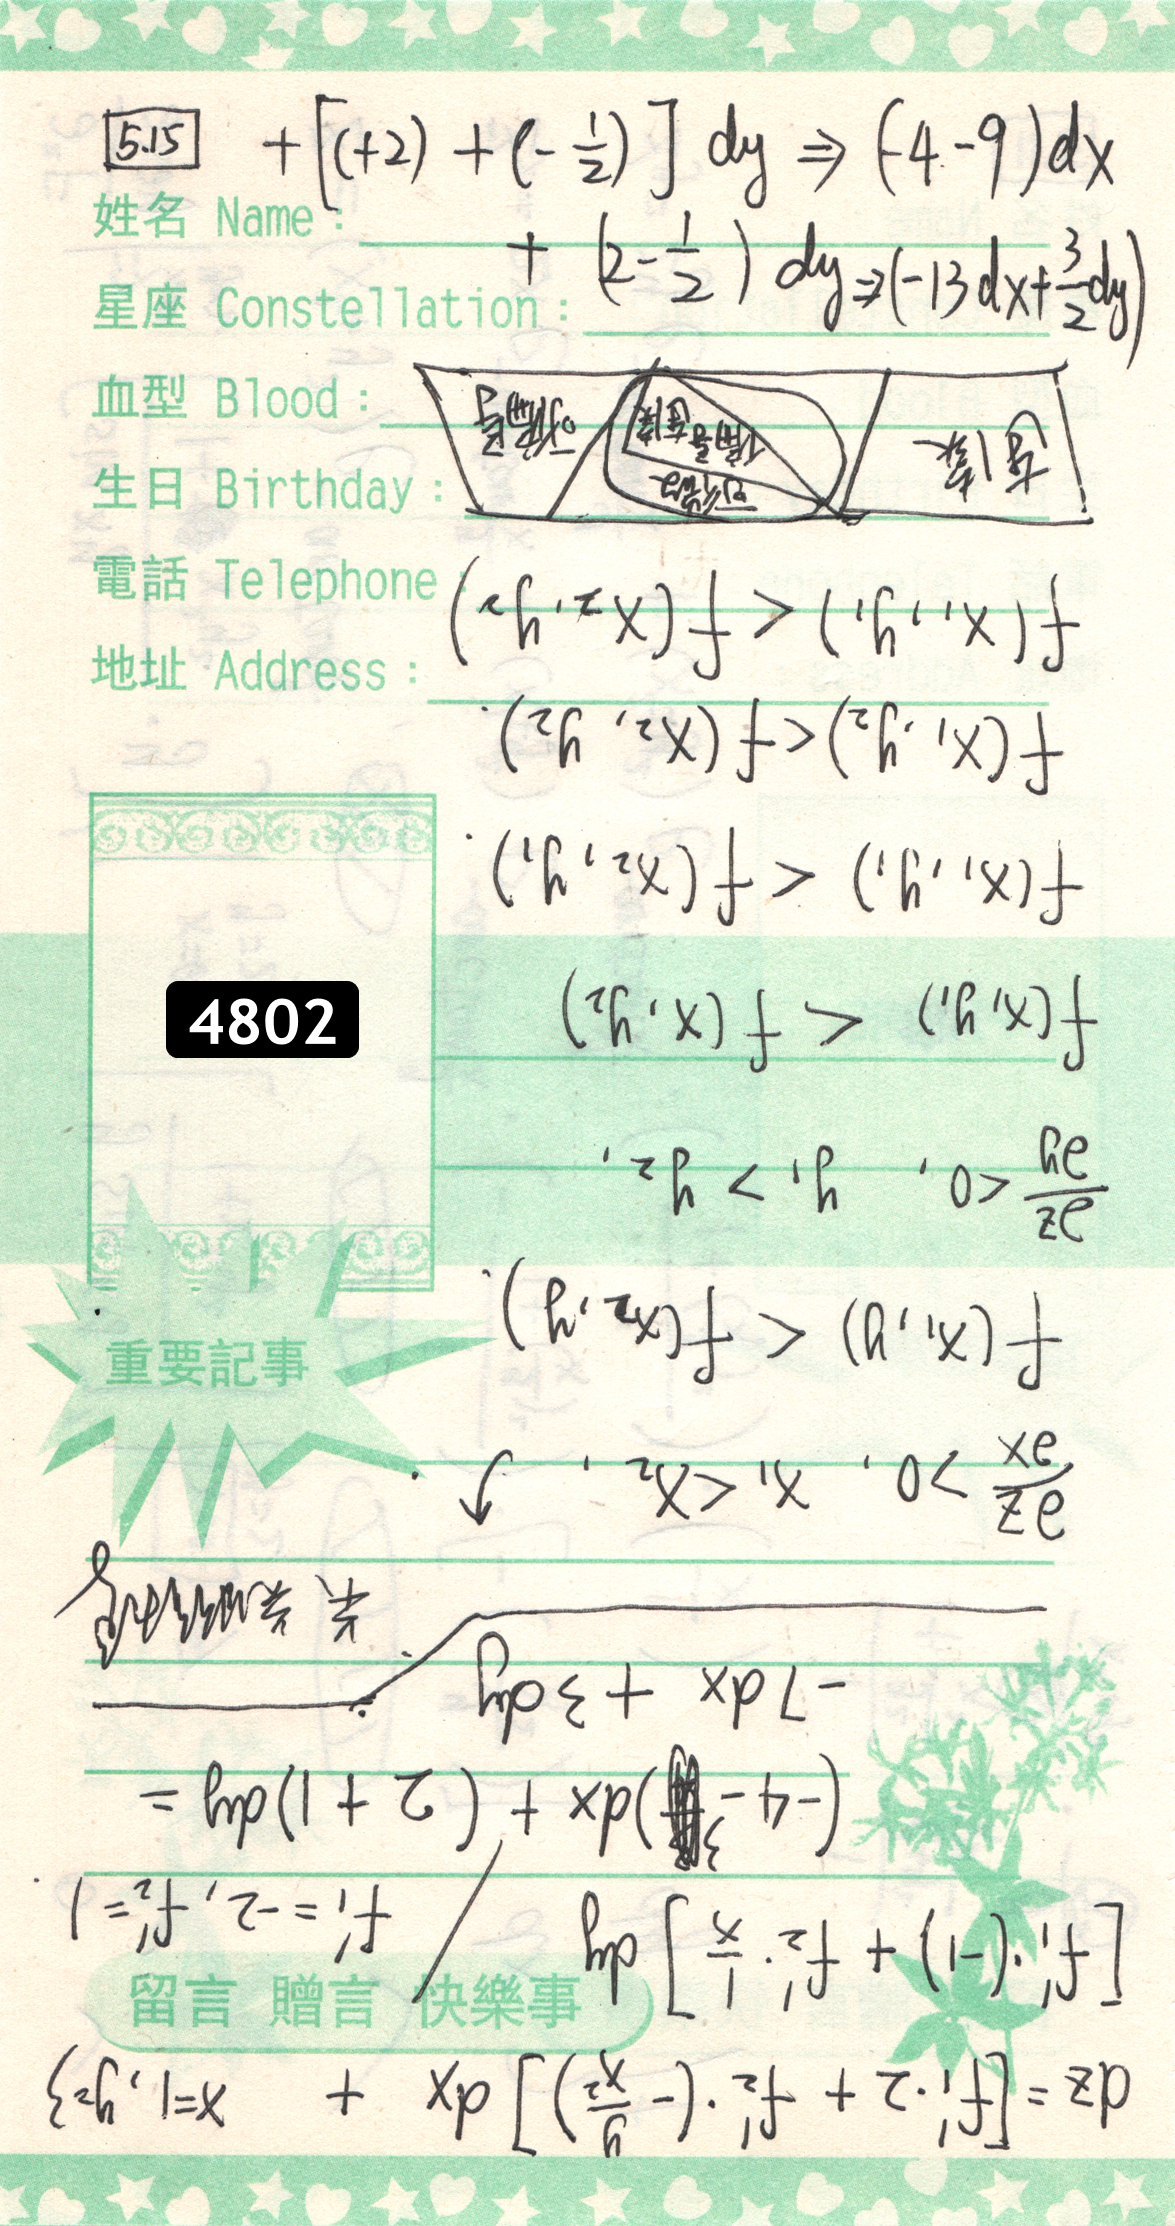 5.15 + [(+2) + (-1/2)] dy ⇒ (-4-9)dx
姓名 Name:
+ (2-1/2) dy ⇒ (-13dx+3/2dy)
星座 Constellation:
血型 Blood:
生日 Birthday:
電話 Telephone:
地址 Address:
4802
重要記事
留言 贈言 快樂事
dz = [f₁'·2 + f₂'·(-y/x²)] dx + x=1, y=3
[f₁'·(-1) + f₂'·1/x] dy / f₁'=-2, f₂'=1
(-4-3)dx + (2+1)dy =
-7dx + 3dy
∂z/∂x >0, x₁<x₂,
f(x₁,y) < f(x₂,y).
∂z/∂y <0, y₁>y₂,
f(x,y₁) < f(x,y₂)
f(x₁,y₁) < f(x₂,y₁).
f(x₁,y₂) < f(x₂,y₂).
f(x₁,y₁) < f(x₂,y₂)